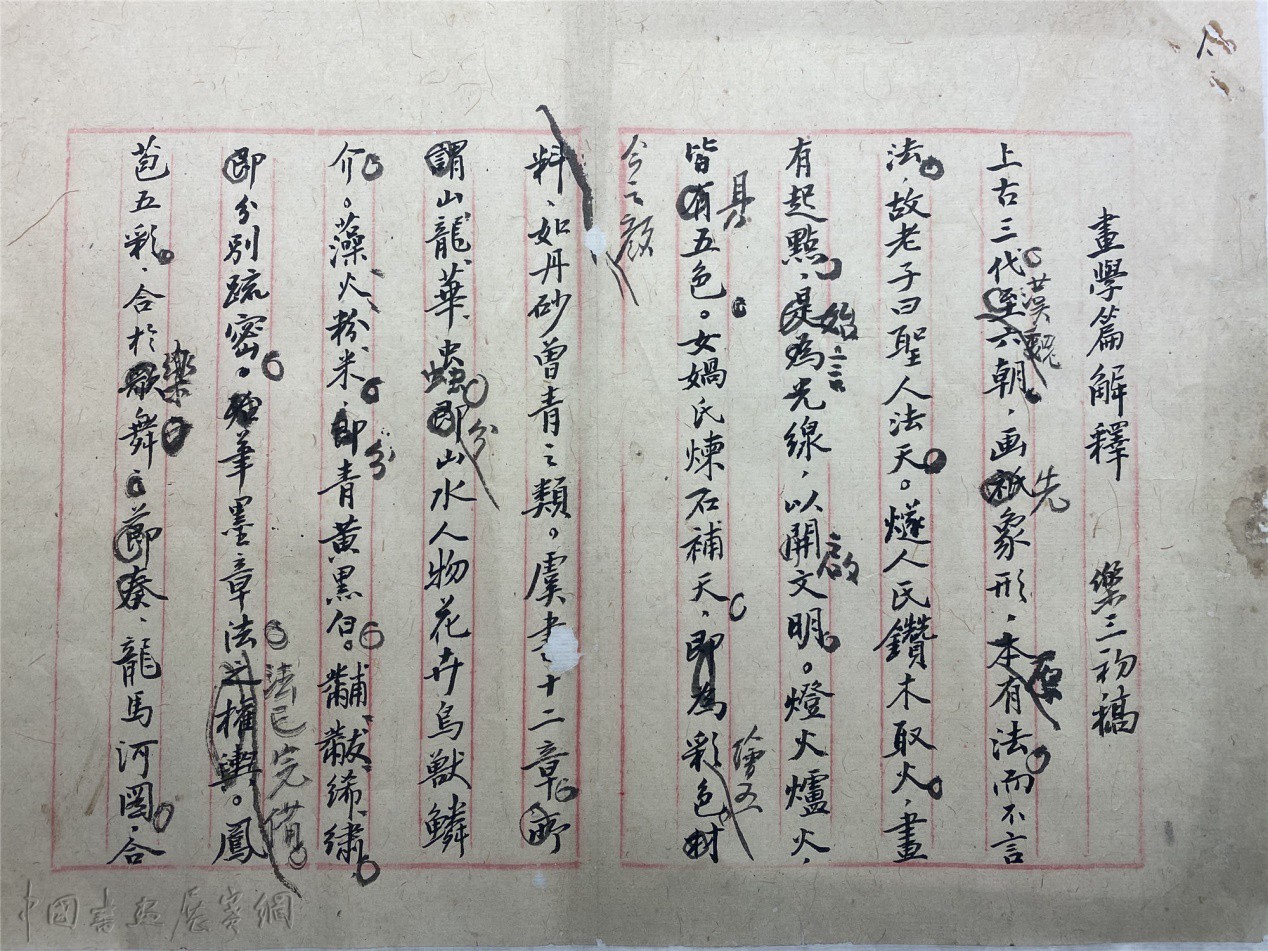 畫學篇解釋 第三初稿
上古三代至漢魏六朝，画祇先象形，本原有法而不言
法，故老子曰聖人法天。燧人氏鑽木取火，畫
有起點，是為始言光線，以開啟文明。燈火爐火，
皆有具五色。女媧氏煉石補天，即為彩色繪五材
今之顏
料、如丹砂曾青之類。虞書十二章，所
謂山龍、華蟲、即分山水人物花卉鳥獸鱗
介。藻火粉米，即分青黃黑白。黼黻絺繡，
即分別疏密。筆墨章法之權輿。法已完備。鳳
苞五彩，合於歌樂舞之節奏、龍馬河圖，合
中國書画展賽網